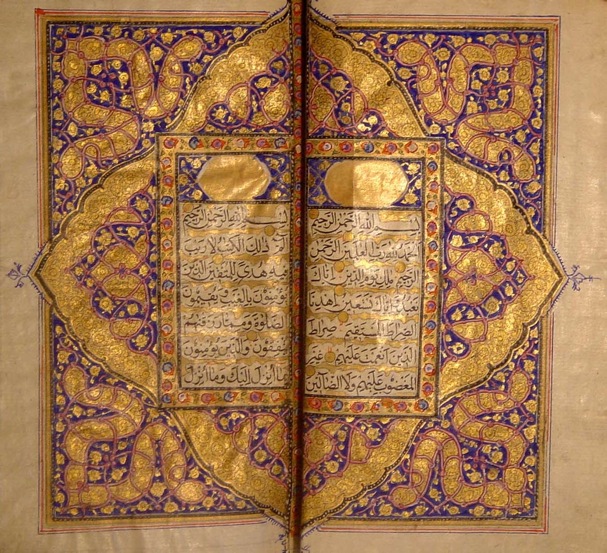 بسم الله الرحمن الرحيم
الحمد لله رب العالمين الرحمن
الرحيم ملك يوم الدين اياك
نعبد واياك نستعين اهدنا
الصراط المستقيم صراط
الذين انعمت عليهم غير
المغضوب عليهم ولا الضالين
بسم الله الرحمن الرحيم
الم ذلك الكتب لا ريب
فيه هدى للمتقين الذين
يؤمنون بالغيب ويقيمون
الصلوة ومما رزقنهم
ينفقون والذين يؤمنون
بما انزل اليك وما انزل